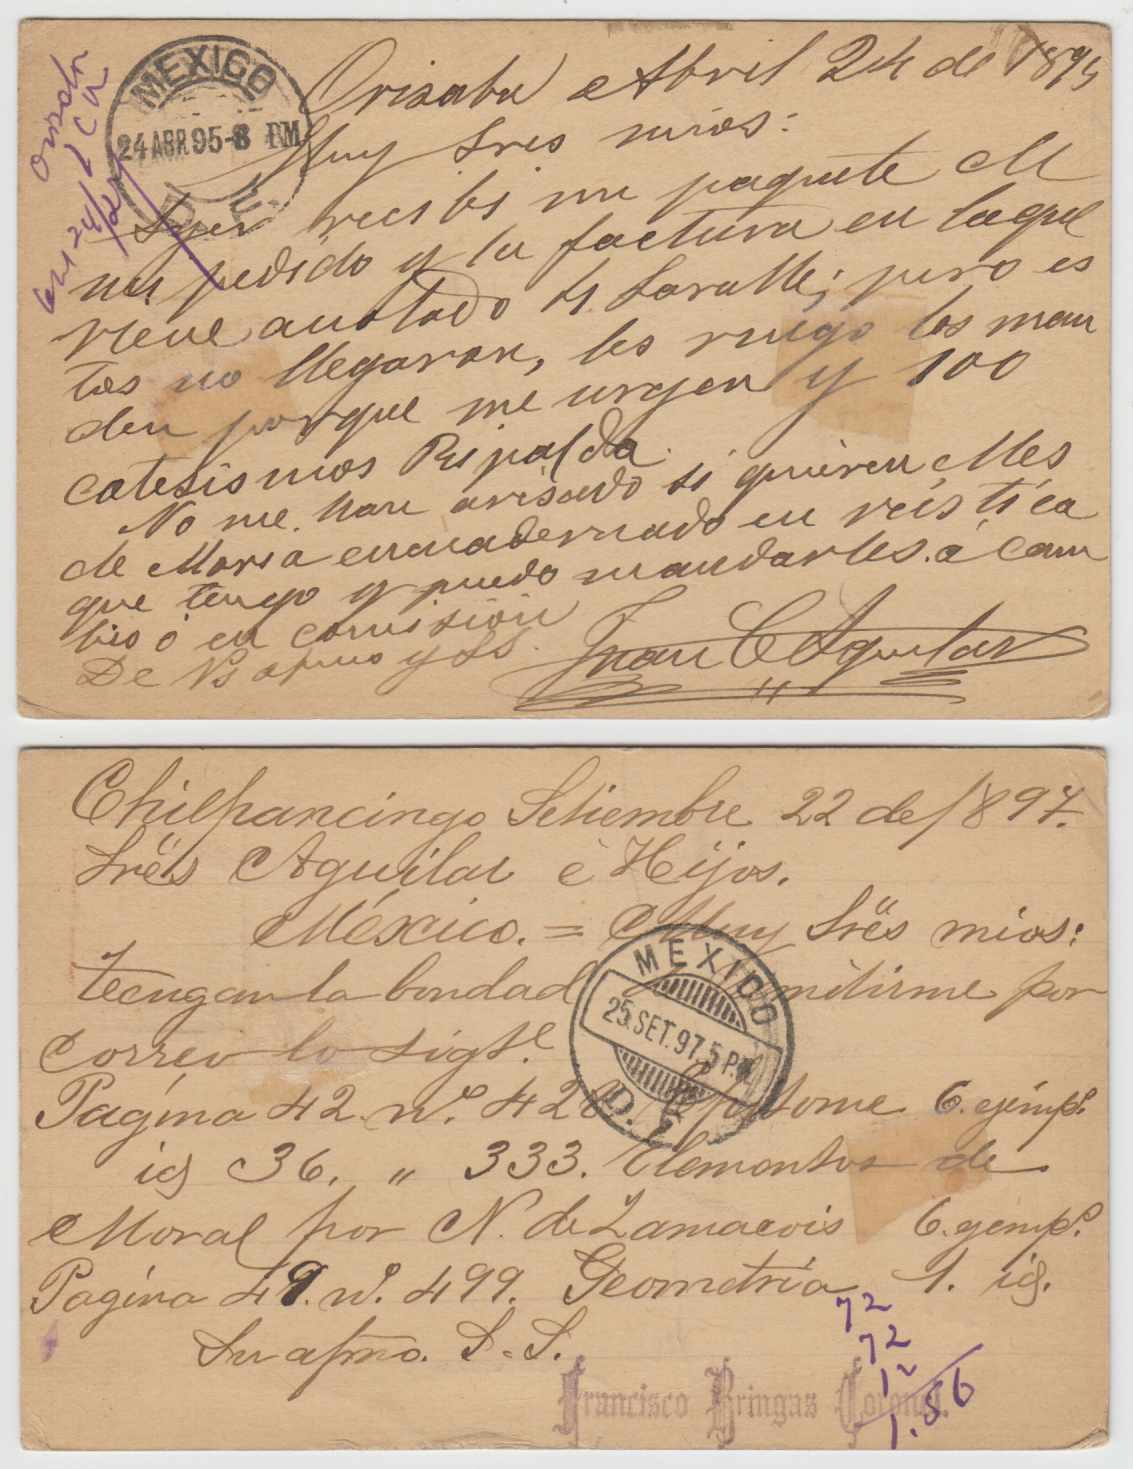 Orizaba Abril 24 de 1895
MEXICO
24 ABR. 95-8 PM
D. F.
Muy Sres mios:
Ayer recibi un paquete
un pedido y la factura en la que
viene anotado
pero es
tos no llegaron, les ruego los man
den porque me urgen y 100
catesismos Ripalda.
No me han avisado si quieren Mes
de Maria encuadernado en rústica
que tengo y puedo mandarles á cam
bio ó en comisión
De Vs afmo y SS.
Juan C Aguilar
Chilpancingo Setiembre 22 de 1897.
Srës Aguilar é Hijos.
México. = Muy Srës mios:
tengan la bondad remitirme por
correo lo sigte.
MEXICO
25. SET. 97. 5 P.M.
D. F.
Pagina 42. nº. 428 Epitome 6. ejemps.
id 36. " 333. Elementos de
Moral por N. de Zamacois 6. ejemps.
Pagina 49. nº. 499. Geometría 1. id.
Su afmo. S. S.
Francisco Bringas Coronel.
72
72
12
1.56